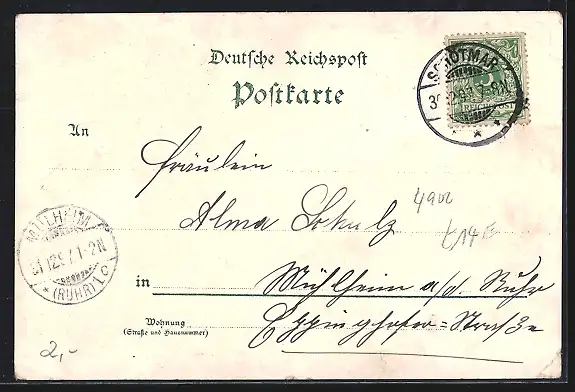 Deutsche Reichspost
Postkarte
SCHÖTMAR
REICHSPOST
An
Fräulein
4902
Alma
MÜLHEIM
31 12 97 1-2N
* (RUHR) 1 c
in Mühlheim a/d. Ruhr
Wohnung
(Straße und Hausnummer)
Eppinghofer=Straße
2,-